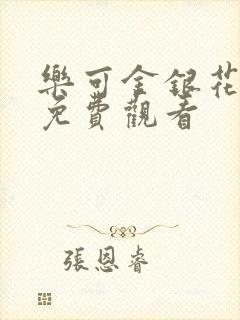 樂可金銀花
免費觀看
張恩睿